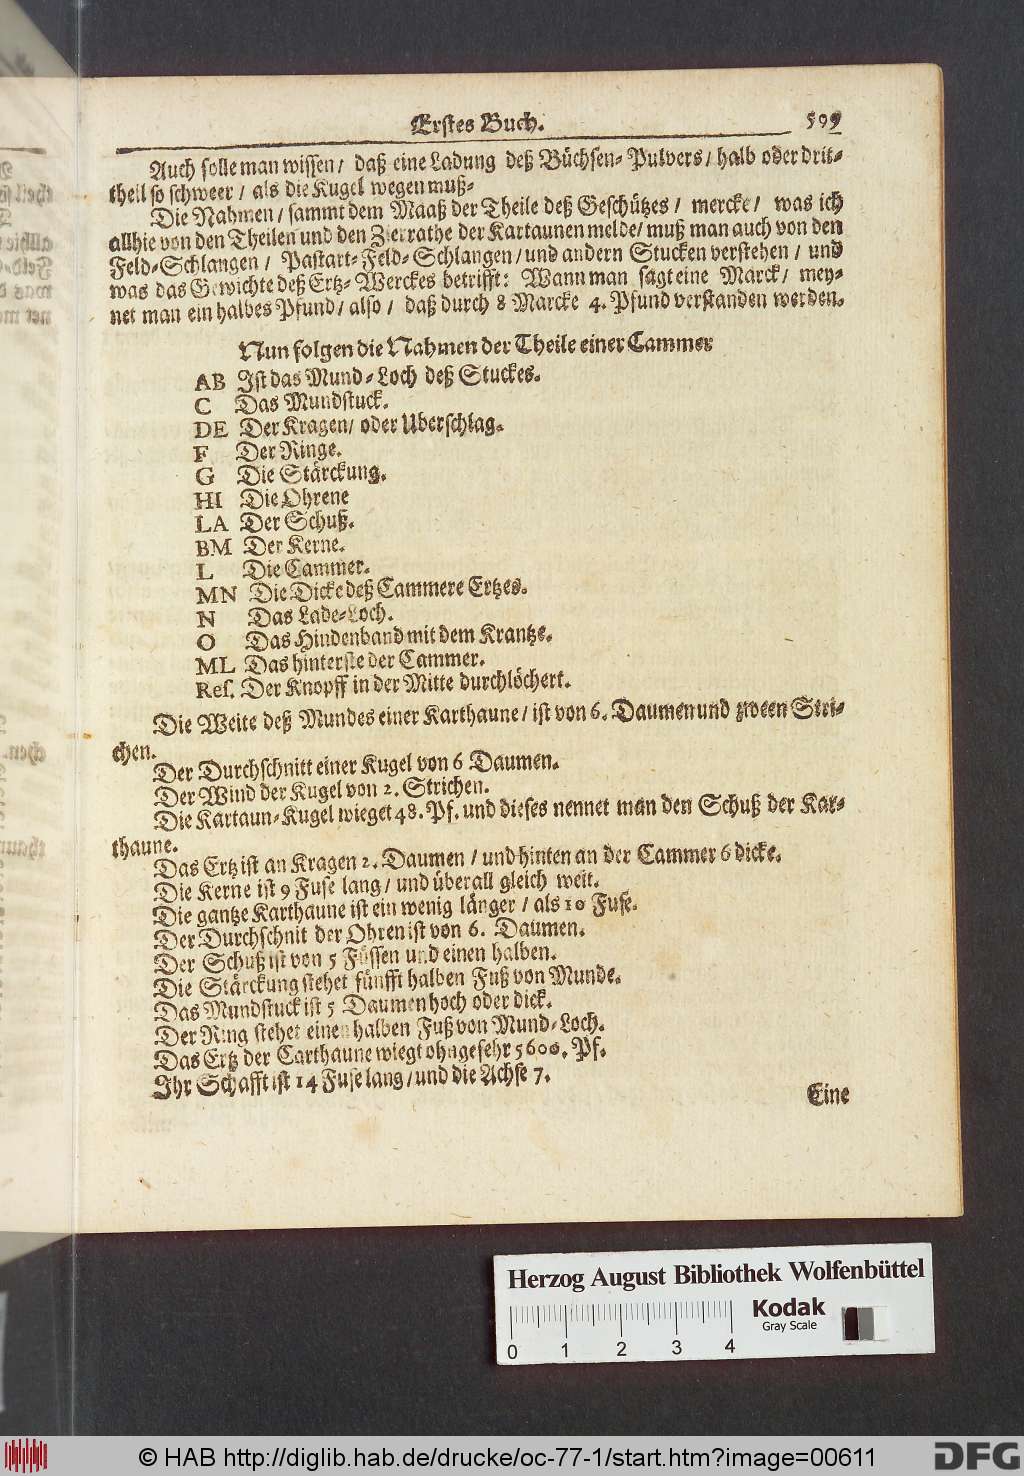 Erstes Buch. 599
Auch solle man wissen / daß eine Ladung deß Büchsen-Pulvers / halb oder drit-
theil so schweer / als die Kugel wegen muß-
Die Nahmen / sammt dem Maaß der Theile deß Geschützes / mercke / was ich
allhie von den Theilen und den Zierrathe der Kartaunen melde / muß man auch von den
Feld-Schlangen / Pastart-Feld-Schlangen / und andern Stucken verstehen / und
was das Gewichte deß Ertz-Werckes betrifft: Wann man sagt eine Marck / mey-
net man ein halbes Pfund / also / daß durch 8 Marcke 4. Pfund verstanden werden.
Nun folgen die Nahmen der Theile einer Cammer
AB Ist das Mund-Loch deß Stuckes.
C Das Mundstuck.
DE Der Kragen / oder Uberschlag.
F Der Ringe.
G Die Stärckung.
HI Die Ohrene
LA Der Schuß.
BM Der Kerne.
L Die Cammer.
MN Die Dicke deß Cammere Ertzes.
N Das Lade-Loch.
O Das Hindenband mit dem Krantze.
ML Das hinterste der Cammer.
Ref. Der Knopff in der Mitte durchlöchert.
Die Weite deß Mundes einer Karthaune / ist von 6. Daumen und zween Stri-
chen.
Der Durchschnitt einer Kugel von 6 Daumen.
Der Wind der Kugel von 2. Strichen.
Die Kartaun-Kugel wieget 48. Pf. und dieses nennet man den Schuß der Kar-
thaune.
Das Ertz ist an Kragen 2. Daumen / und hinten an der Cammer 6 dicke.
Die Kerne ist 9 Fuse lang / und überall gleich weit.
Die gantze Karthaune ist ein wenig länger / als 10 Fuse.
Der Durchschnit der Ohren ist von 6. Daumen.
Der Schuß ist von 5 Füssen und einen halben.
Die Stärckung stehet fünfft halben Fuß von Munde.
Das Mundstuck ist 5 Daumen hoch oder dick.
Der Ring stehet einen halben Fuß von Mund-Loch.
Das Ertz der Carthaune wiegt ohngefehr 5600. Pf.
Ihr Schafft ist 14 Fuse lang / und die Achse 7.
Eine
Herzog August Bibliothek Wolfenbüttel
Kodak
Gray Scale
0 1 2 3 4
© HAB http://diglib.hab.de/drucke/oc-77-1/start.htm?image=00611
DFG